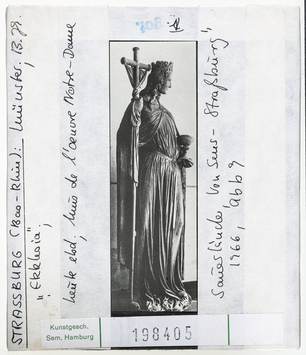 STRASSBURG (Bas-Rhin): Münster, 13. Jh.
"Ekklesia",
heute ebd. Mus de l'oeuvre Notre-Dame
Sauerländer Von Sens - Straßburg
1966, Abb 9
Kunstgesch.
Sem. Hamburg
198405